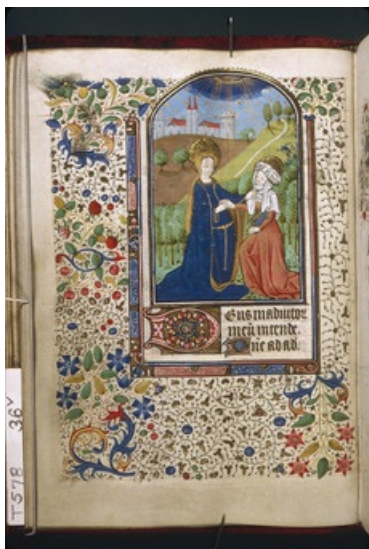 DEus in adiutor
meū intende.
Dne ad ad.
T578 36v